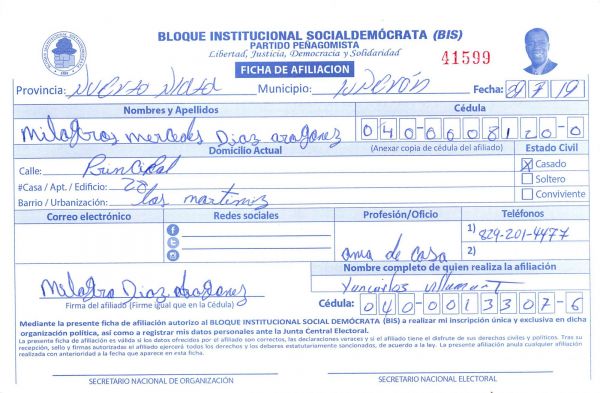 BLOQUE INSTITUCIONAL SOCIALDEMÓCRATA (BIS)
PARTIDO PEÑAGOMISTA
Libertad, Justicia, Democracia y Solidaridad
41599
FICHA DE AFILIACION
Provincia: Puerto Plata Municipio: Fecha: 7/19
Nombres y Apellidos Cédula
Milagros mercedes Diaz aragonez 040-0008120-0
Domicilio Actual (Anexar copia de cédula del afiliado) Estado Civil
Calle: Principal X Casado
#Casa / Apt. / Edificio: 28 Soltero
Barrio / Urbanización: los martinez Conviviente
Correo electrónico Redes sociales Profesión/Oficio Teléfonos
1) 829-201-4477
ama de casa 2)
Nombre completo de quien realiza la afiliación
Milagro Diaz aragonez
Firma del afiliado (Firme igual que en la Cédula) Cédula: 040-0013307-6
Mediante la presente ficha de afiliación autorizo al BLOQUE INSTITUCIONAL SOCIAL DEMÓCRATA (BIS) a realizar mi inscripción única y exclusiva en dicha
organización política, así como a registrar mis datos personales ante la Junta Central Electoral.
La presente ficha de afiliación es válida si los datos ofrecidos por el afiliado son correctos, las declaraciones veraces y si el afiliado tiene el disfrute de sus derechos civiles y políticos. Tras su
recepción, sello y firmas autorizadas el afiliado ejercerá todos los derechos y los deberes estatutariamente sancionados, de acuerdo a la ley. La presente afiliación anula cualquier afiliación
realizada con anterioridad a la fecha que aparece en esta ficha.
SECRETARIO NACIONAL DE ORGANIZACIÓN SECRETARIO NACIONAL ELECTORAL